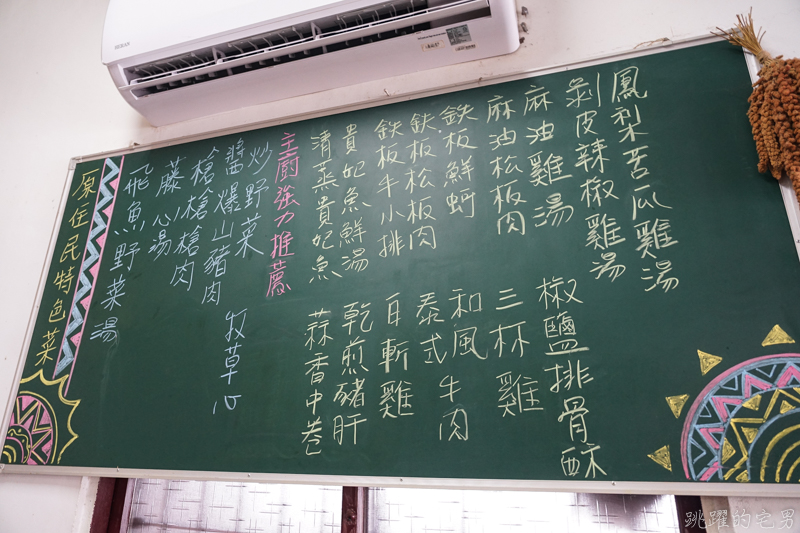 鳳梨苦瓜雞湯
剝皮辣椒雞湯
麻油雞湯
麻油松板肉
鉄板鮮蚵
鉄板松板肉
鉄板牛小排
貴妃魚鮮湯
清蒸貴妃魚
椒鹽排骨酥
三杯雞
和風牛肉
泰式
白斬雞
乾煎豬肝
蒜香中卷
主廚強力推薦
炒野菜
醬爆山豬肉
槍槍槍肉
藤心湯
飛魚野菜湯
牧草心
原住民特色菜
跳躍的宅男